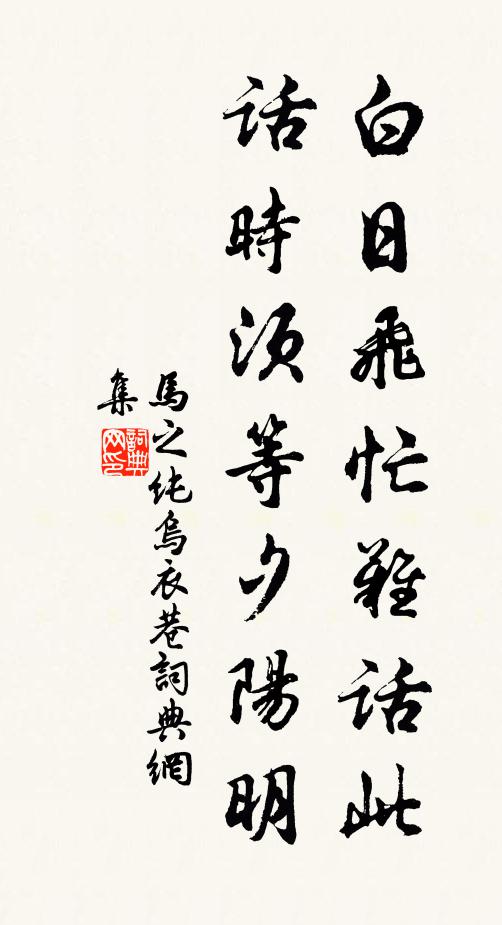 白日飛忙難话此
话時須等夕陽明
馬之纯烏衣巷詞典網
集
詞典网印